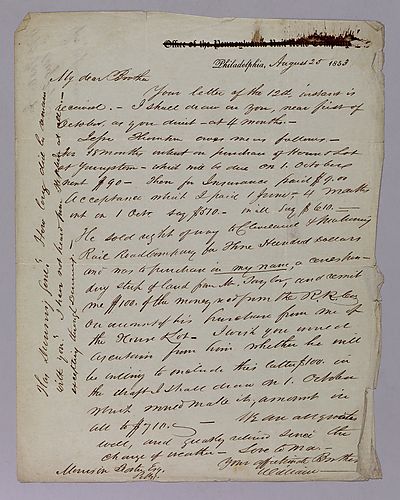 Office of the Pennsylvania
Philadelphia, August 25 1853
My dear Brother
Your letter of the 12th instant is
received. - I shall draw on you, near first of
October, as you direct - at 4 months -
owes me as follows -
18 months interest on purchase of House & Lot
at - which will be due on 1. October
next $90 - Then for Insurance paid $9.00
Acceptance which I paid 1 June - 4 months
int on 1 Octr say $510. - in all say $610. -
He sold right of way to Cleveland & Mahoning
Rail Road Company for Three Hundred Dollars
and was to purchase in my name, a
strip of land from Mr. Taylor, and remit
me $100. of the money recd from the R. R. Co.
on account of his purchase from me of
the House & Lot - I wish you would
ascertain from him whether he will
be willing to include this latter $100. in
the draft I shall draw on 1. October
which would make its amount in
all to $710. - We are all quite
well, and greatly relieved since the
change of weather - Love to Ma -
Your affectionate Brother
William
Esq.
Has gone? How long did he remain
with you? I have not heard from